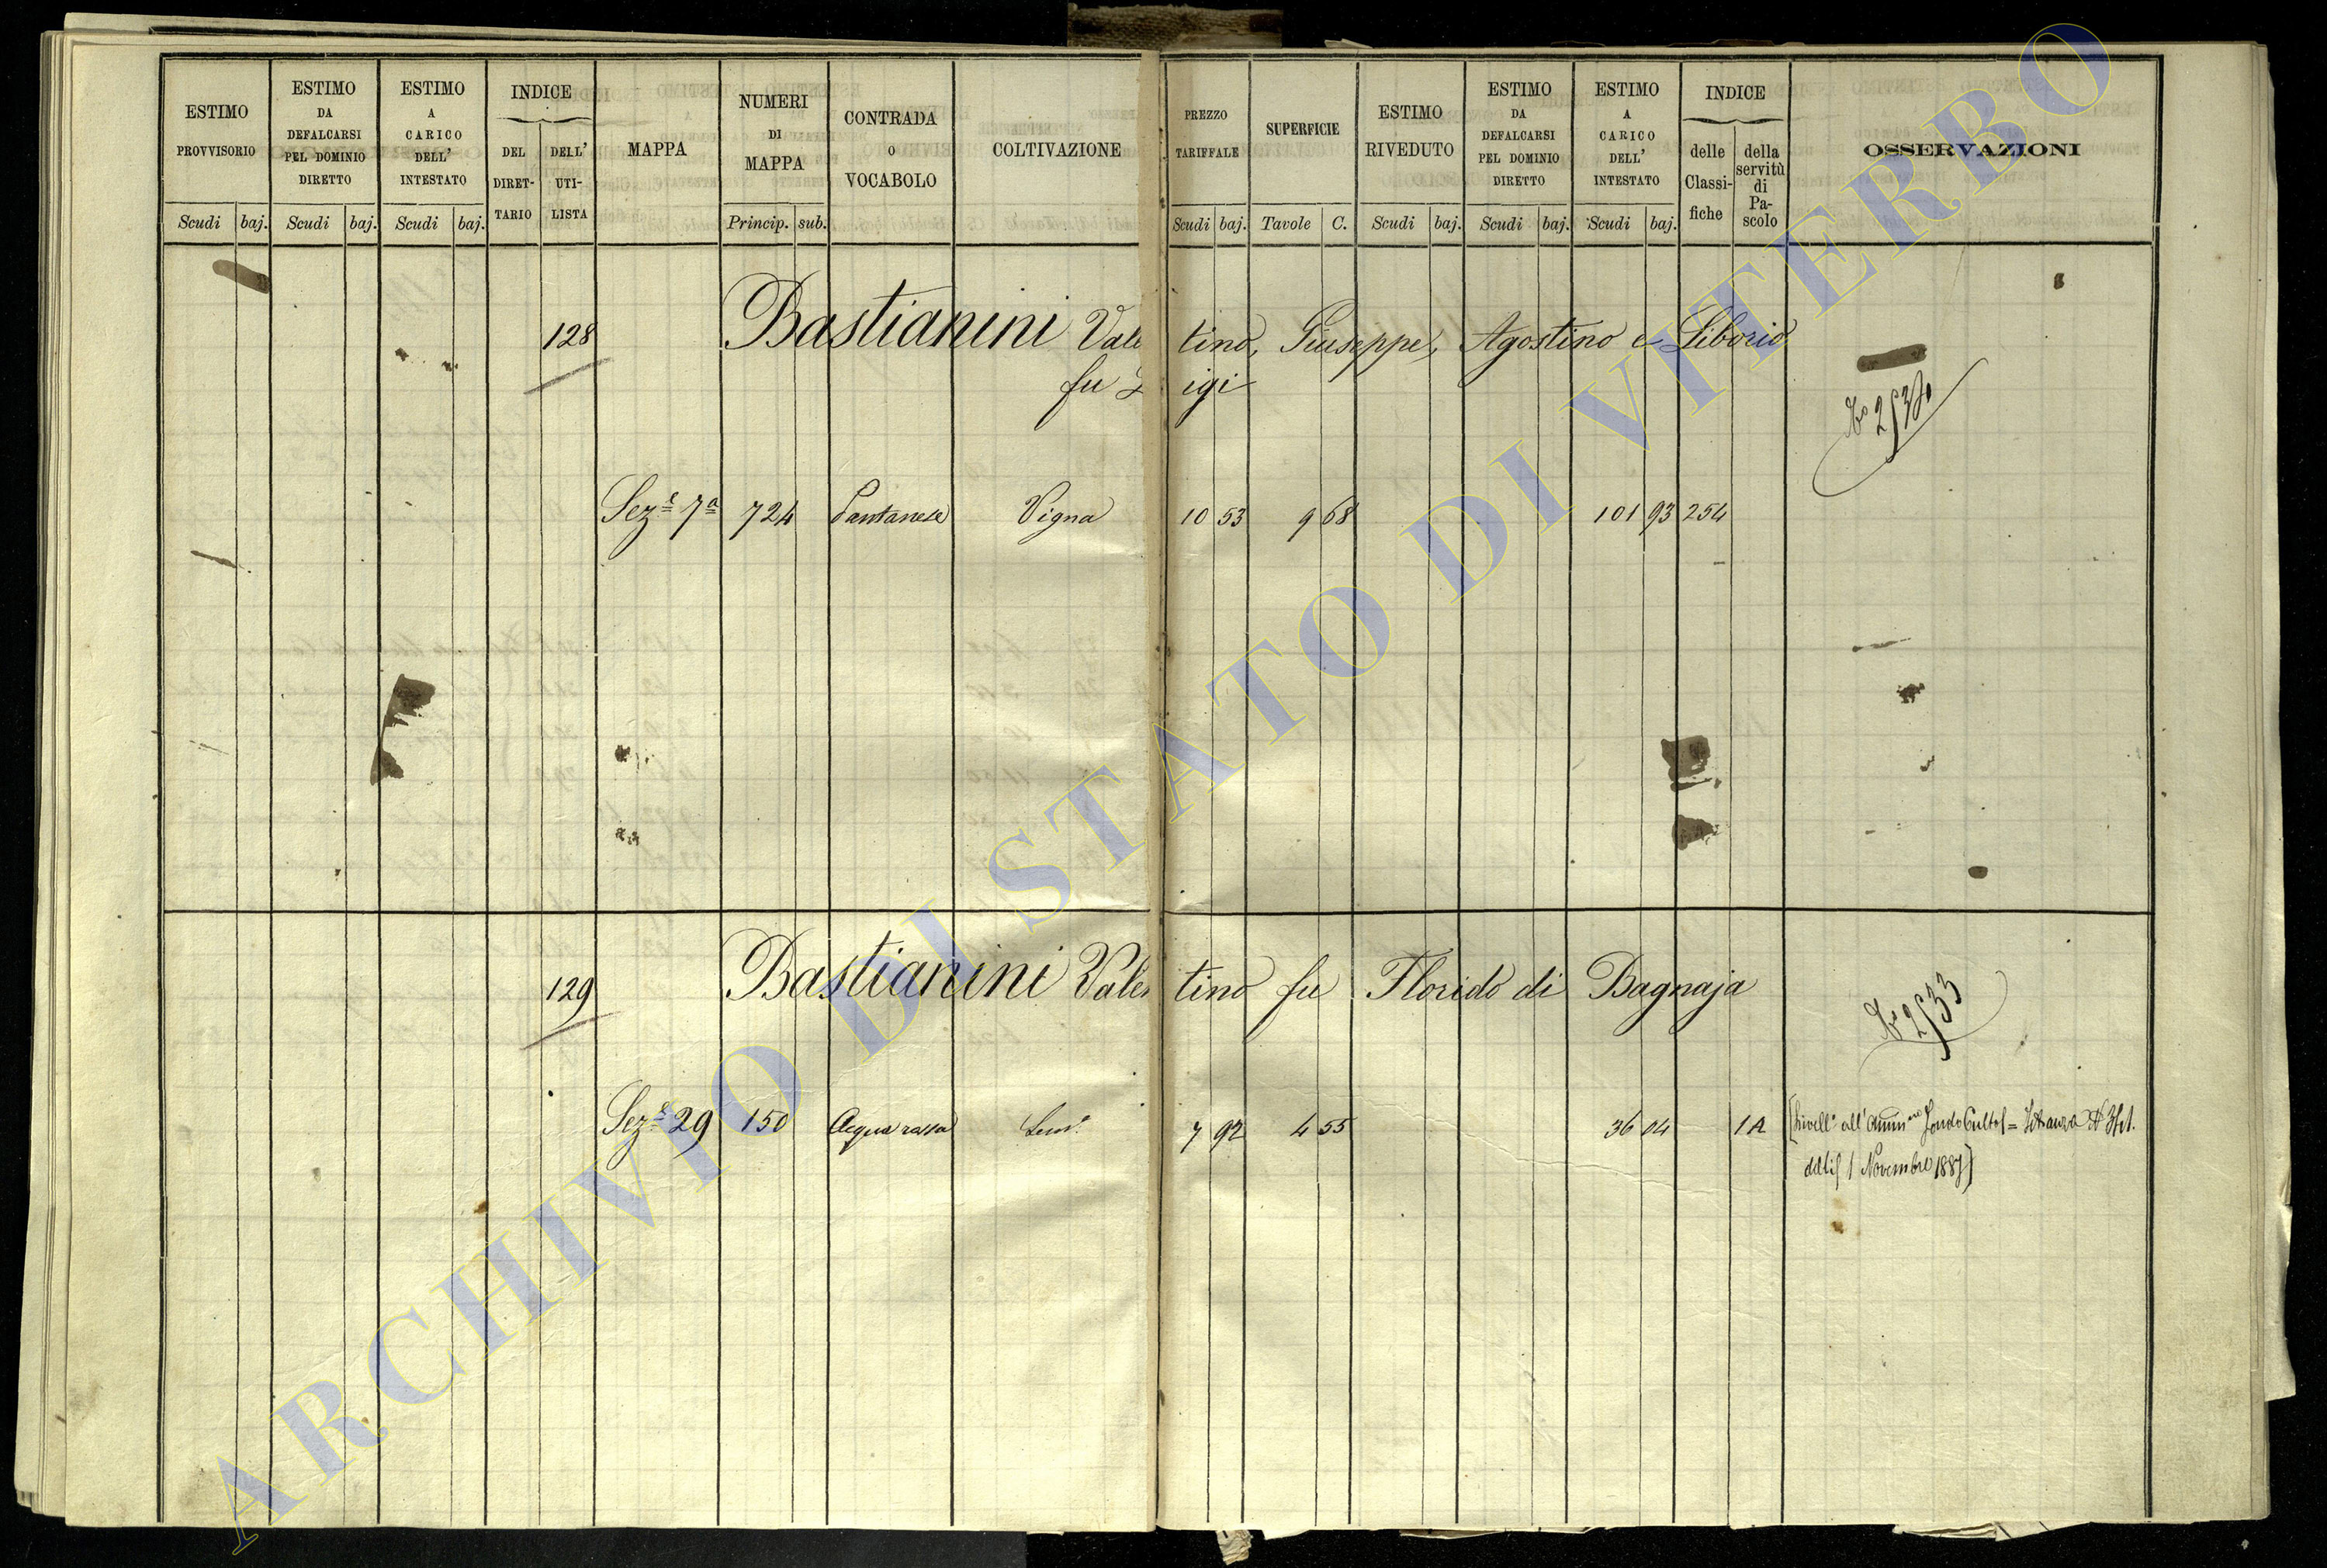 ESTIMO PROVVISORIO
Scudi baj.
ESTIMO DA DEFALCARSI PEL DOMINIO DIRETTO
Scudi baj.
ESTIMO A CARICO DELL' INTESTATO
Scudi baj.
INDICE
DEL DIRET-TARIO
DELL' UTI-LISTA
MAPPA
NUMERI DI MAPPA
Princip. sub.
CONTRADA O VOCABOLO
COLTIVAZIONE
PREZZO TARIFFALE
Scudi baj.
SUPERFICIE
Tavole C.
ESTIMO RIVEDUTO
Scudi baj.
ESTIMO DA DEFALCARSI PEL DOMINIO DIRETTO
Scudi baj.
ESTIMO A CARICO DELL' INTESTATO
Scudi baj.
INDICE
delle Classi-fiche
della servitù di Pa-scolo
OSSERVAZIONI
128 Bastianini Vale tino, Giuseppe, Agostino e Liborio
fu L igi
Sez.e 7a 724 Pantanese Vigna 10 53 9 68 101 93 254
129 Bastianini Valen tino fu Florido di Bagnaja
No 2533
Sez.e 29 150 Acqua rossa Sem.o 7 92 4 55 36 04 1A
Novembre 1887
ARCHIVIO DI STATO DI VITERBO